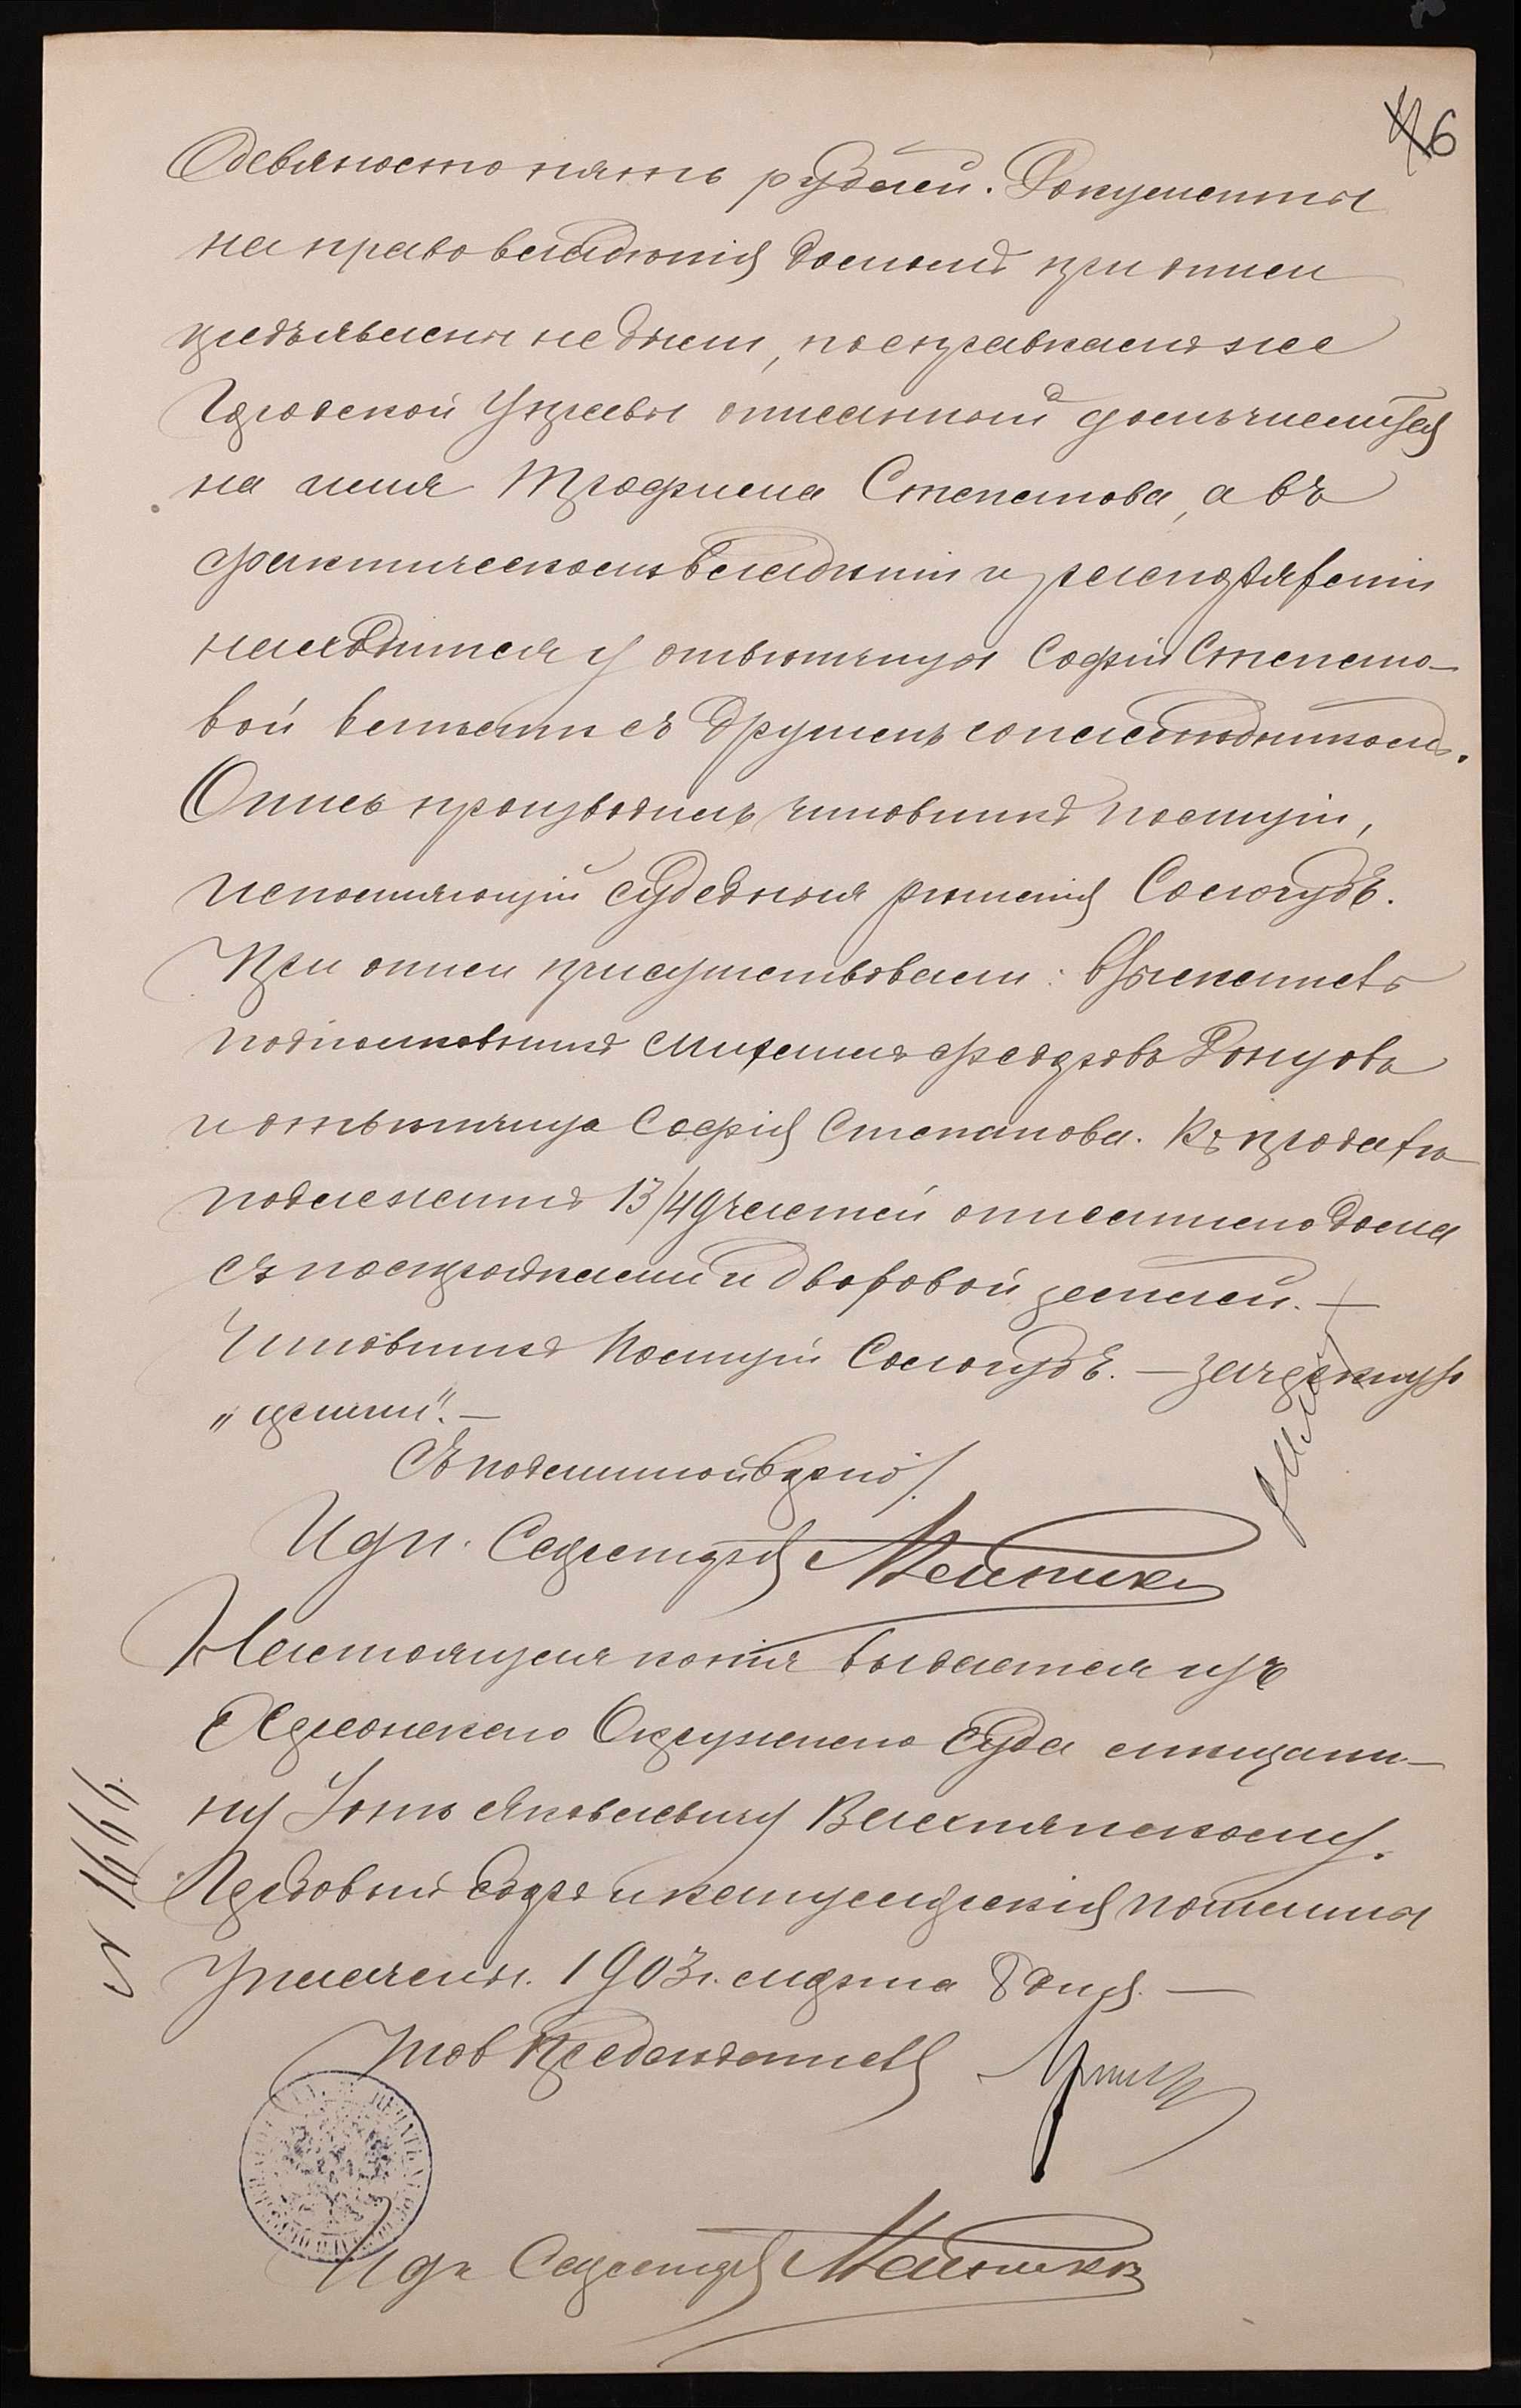 6
девяносто пять рублей. Документы
на право владѣнія домомъ при описи
предъявлены не были, по справкамъ же
Городской Управы описанный домъ числится
на имя Трофима Степанова, а въ
фактическомъ владѣніи и распоряженіи
находится у отвѣтчицы Софіи Степано-
вой вмѣстѣ съ другимъ сонаслѣдникомъ.
Опись производилъ чиновникъ полиціи,
исполняющій судебныя рѣшенія Сологубъ.
При описи присутствовали: взыскатель
подполковникъ Михаилъ Федоровъ Донцовъ
и отвѣтчица Софія Степанова. Къ продажѣ
подлежитъ 13/49 частей описаннаго дома
съ постройками и дворовой землей. —
Чиновникъ Полиціи Сологубъ. — зачеркнуто
„ цѣлый". —
Съ подлинной вѣрно:
И д п. Секретаря
Настоящая копія выдается изъ
Херсонскаго Окружнаго Суда мѣщани-
ну Іонѣ Яковлевичу
Гербовый сборъ и канцелярскія пошлины
уплачены. 1903 г. марта 8 дня. —
№ 1666.
Тов Предсѣдателя
И д п Секретаря